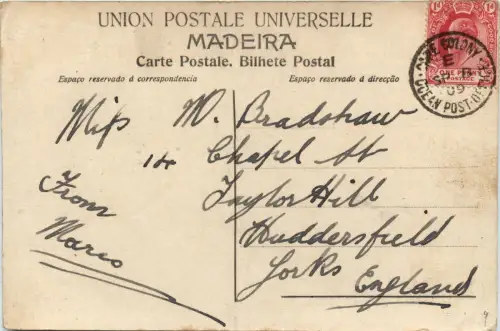 UNION POSTALE UNIVERSELLE
MADEIRA
Carte Postale. Bilhete Postal
Espaço reservado á correspondencia
Espaço reservado á direcção
Miss M. Bradshaw
14 Chapel St
Taylor Hill
Huddersfield
Yorks England
From
CAPE COLONY
OCEAN POST